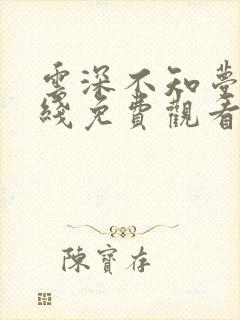 雲深不知夢
綫免費觀看
陳寶存